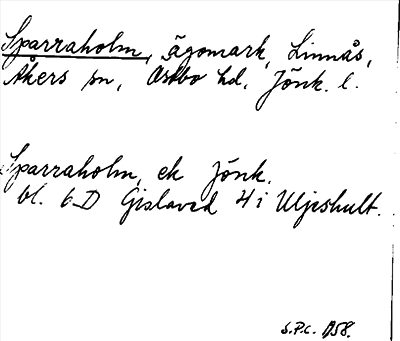 Sparraholm, ägomark, Linnås,
Åkers sn, Östbo hd, Jönk. l.
Sparraholm, ek Jönk.
bl. 6D Gislaved 4i Uljeshult.
S.P.C. 1958.